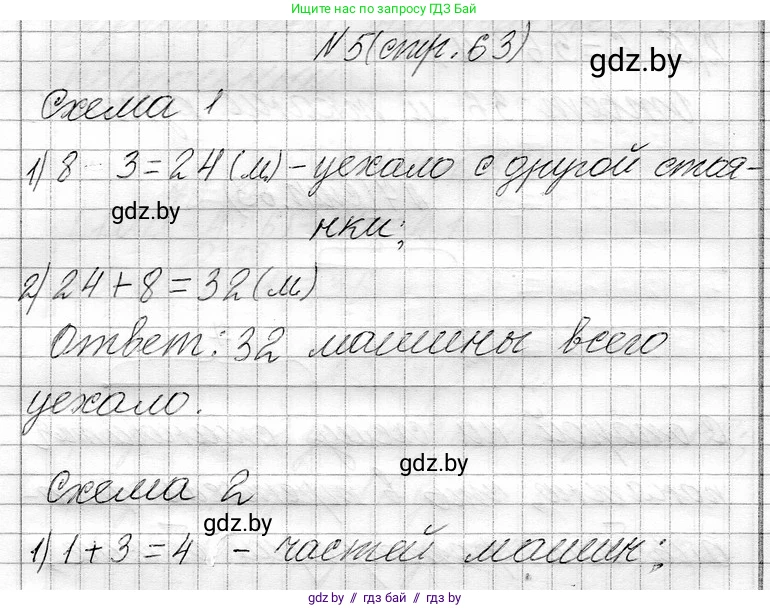 Ищите нас по запросу ГДЗ Бай
№5(стр. 63)
gdz.by
Схема 1
1) 8 3=24(м)-уехало с другой стоя-
gdz.by
нки;
2) 24+8=32(м)
Ответ: 32 машины всего
уехало.
gdz.by
Схема 2
gdz.by
1) 1+3=4 - частей машин;
gdz.by // гдз бай // gdz.by